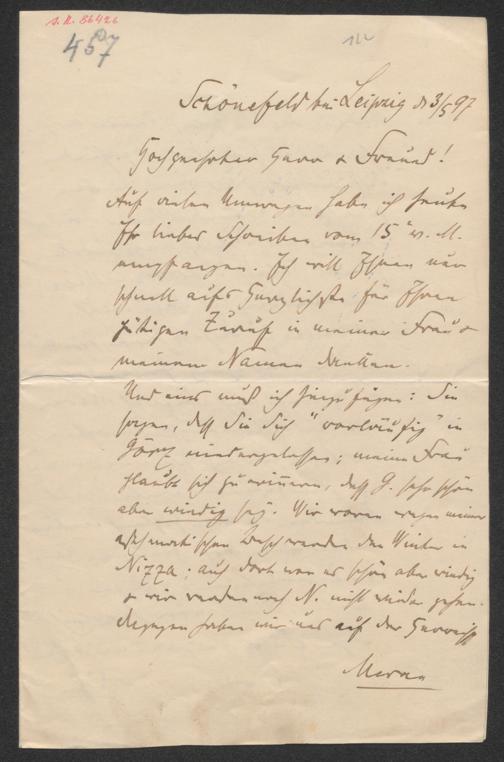 I.N. 86426
457
Schönefeld bei Leipzig d 3/5 97
Hochgeehrter Herr & Freund!
Auf vielen Umwegen habe ich heute
Ihr liebes Schreiben vom 15 v. M.
empfangen. Ich will Ihnen nur
schnell aufs Herzlichste für Ihren
gütigen Zuruf in meiner Frau &
meinem Namen danken.
Und eins muß ich hinzufügen: Sie
sagen, daß Sie Sich "vorläufig" in
Görz niedergelassen; meine Frau
glaubt sich zu erinnern, daß G. sehr schön
aber windig sei. Wir waren wegen meiner
asthmatischen Beschwerden den Winter in
Nizza; auch dort war es schön aber windig
& wir werden nach N. nicht wieder gehen.
Dagegen haben wir uns auf der Herreise
Meran